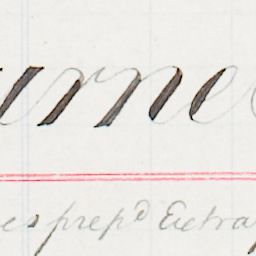 urne
es prep^d Extra